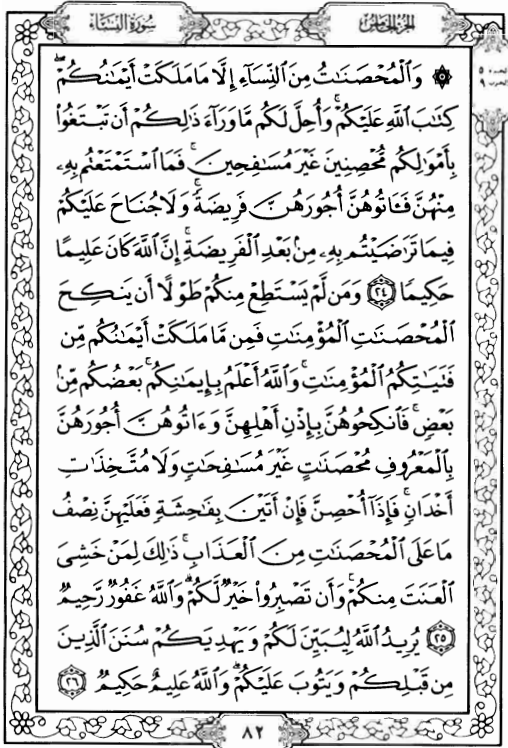 سُورَةُ النِّسَاءِ
الجُزْءُ الخَامِسُ
۞ وَالْمُحْصَنَاتُ مِنَ النِّسَاءِ إِلَّا مَا مَلَكَتْ أَيْمَانُكُمْ ۖ
كِتَابَ اللَّهِ عَلَيْكُمْ ۚ وَأُحِلَّ لَكُم مَّا وَرَاءَ ذَٰلِكُمْ أَن تَبْتَغُوا
بِأَمْوَالِكُم مُّحْصِنِينَ غَيْرَ مُسَافِحِينَ ۚ فَمَا اسْتَمْتَعْتُم بِهِ
مِنْهُنَّ فَآتُوهُنَّ أُجُورَهُنَّ فَرِيضَةً ۚ وَلَا جُنَاحَ عَلَيْكُمْ
فِيمَا تَرَاضَيْتُم بِهِ مِن بَعْدِ الْفَرِيضَةِ ۚ إِنَّ اللَّهَ كَانَ عَلِيمًا
حَكِيمًا ۝٢٤ وَمَن لَّمْ يَسْتَطِعْ مِنكُمْ طَوْلًا أَن يَنكِحَ
الْمُحْصَنَاتِ الْمُؤْمِنَاتِ فَمِن مَّا مَلَكَتْ أَيْمَانُكُم مِّن
فَتَيَاتِكُمُ الْمُؤْمِنَاتِ ۚ وَاللَّهُ أَعْلَمُ بِإِيمَانِكُم ۚ بَعْضُكُم مِّن
بَعْضٍ ۚ فَانكِحُوهُنَّ بِإِذْنِ أَهْلِهِنَّ وَءَاتُوهُنَّ أُجُورَهُنَّ
بِالْمَعْرُوفِ مُحْصَنَاتٍ غَيْرَ مُسَافِحَاتٍ وَلَا مُتَّخِذَاتِ
أَخْدَانٍ ۚ فَإِذَا أُحْصِنَّ فَإِنْ أَتَيْنَ بِفَاحِشَةٍ فَعَلَيْهِنَّ نِصْفُ
مَا عَلَى الْمُحْصَنَاتِ مِنَ الْعَذَابِ ۚ ذَٰلِكَ لِمَنْ خَشِيَ
الْعَنَتَ مِنكُمْ ۚ وَأَن تَصْبِرُوا خَيْرٌ لَّكُمْ ۗ وَاللَّهُ غَفُورٌ رَّحِيمٌ
۝٢٥ يُرِيدُ اللَّهُ لِيُبَيِّنَ لَكُمْ وَيَهْدِيَكُمْ سُنَنَ الَّذِينَ
مِن قَبْلِكُمْ وَيَتُوبَ عَلَيْكُمْ ۗ وَاللَّهُ عَلِيمٌ حَكِيمٌ ۝٢٦
٨٢